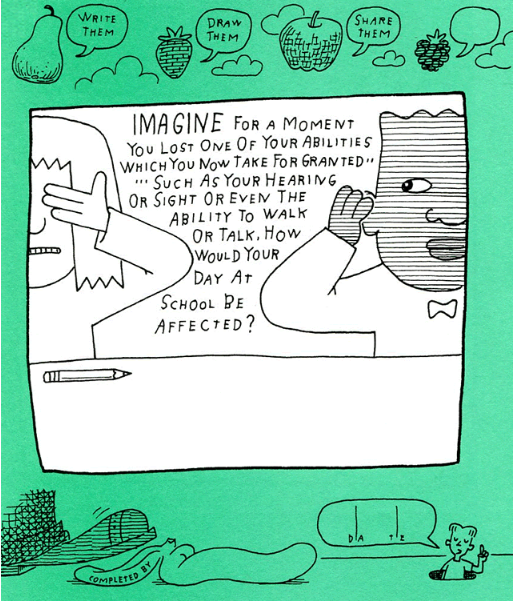 WRITE
THEM
DRAW
THEM
SHARE
THEM
IMAGINE FOR A MOMENT
YOU LOST ONE OF YOUR ABILITIES
WHICH YOU NOW TAKE FOR GRANTED"
"' SUCH AS YOUR HEARING
OR SIGHT OR EVEN THE
ABILITY TO WALK
OR TALK, HOW
WOULD YOUR
DAY AT
SCHOOL BE
AFFECTED?
COMPLETED BY